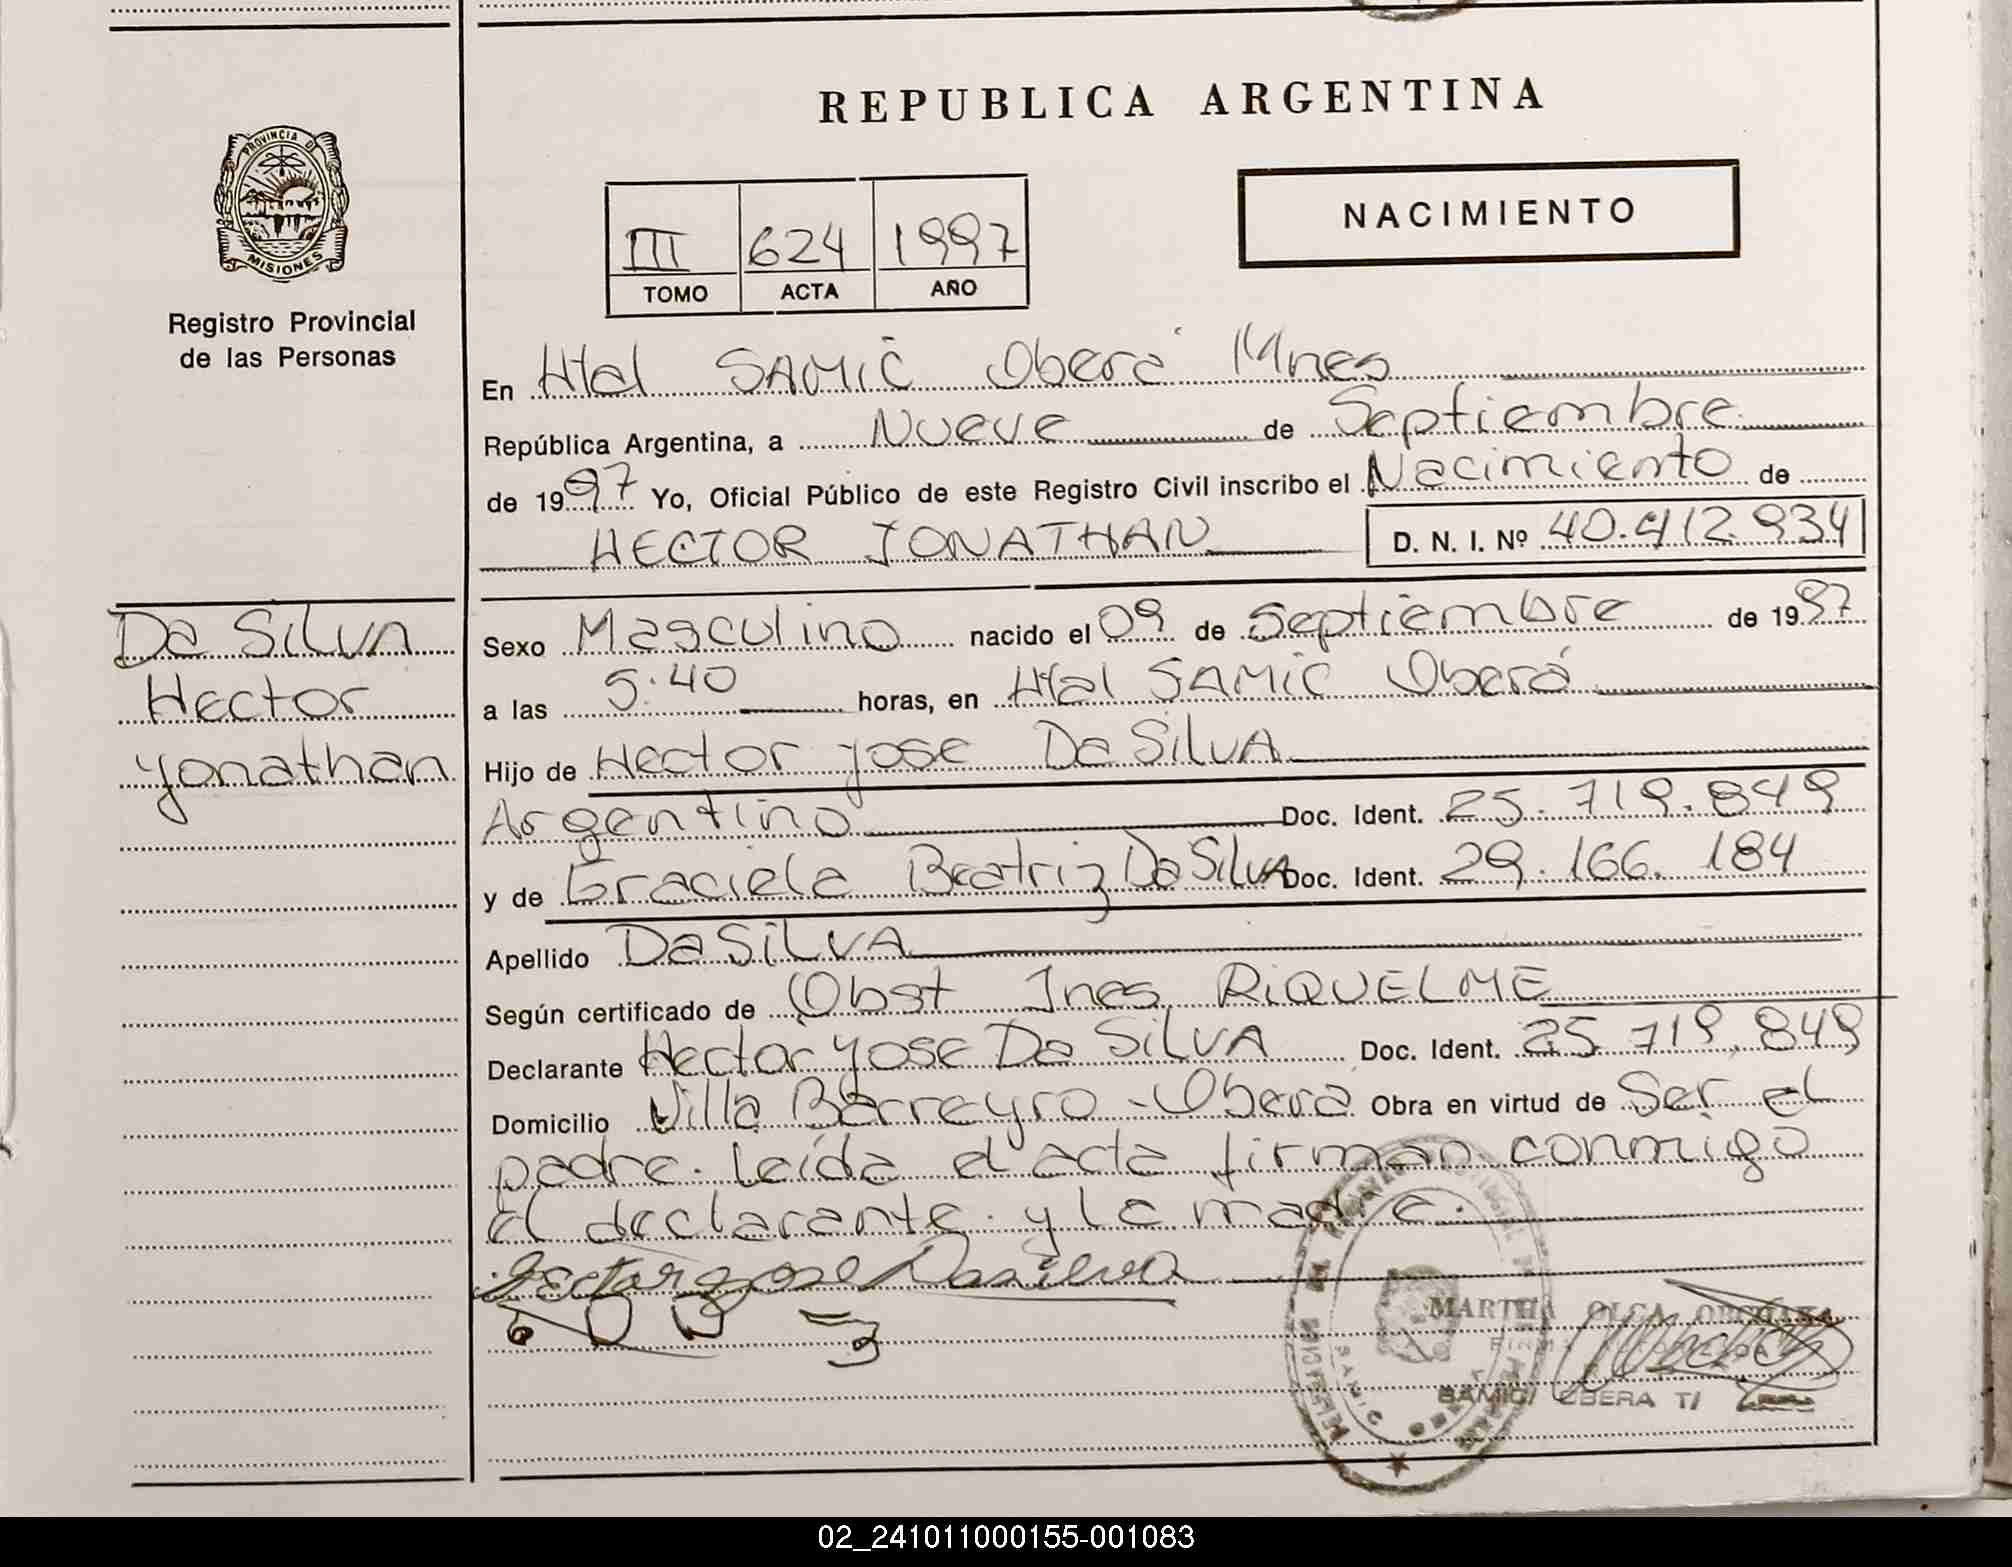 REPUBLICA ARGENTINA
PROVINCIA DE MISIONES
Registro Provincial
de las Personas
NACIMIENTO
III 624 1997
TOMO ACTA AÑO
En Htal SAMIC Oberá Mnes
República Argentina, a Nueve de Septiembre
de 1997 Yo, Oficial Público de este Registro Civil inscribo el Nacimiento de
HECTOR JONATHAN D. N. I. Nº 40.412.934
Da Silva
Hector
Yonathan
Sexo Masculino nacido el 09 de Septiembre de 1997
a las 5:40 horas, en Htal SAMIC Oberá
Hijo de Hector Jose Da SilvA
Argentino Doc. Ident. 25.719.849
y de Graciela Beatriz Da SilvA Doc. Ident. 29.166.184
Apellido Da SiLVA
Según certificado de Obst Ines RiQUELME
Declarante Hector Yose Da SilVA Doc. Ident. 25.719.849
Domicilio Villa Barreyro - Obera Obra en virtud de Ser el
padre. leída el acta firman conmigo
el declarante y la madre.
Hector Jose Dasilva
MARTHA OLGA
SAMIC/ OBERA
02_241011000155-001083